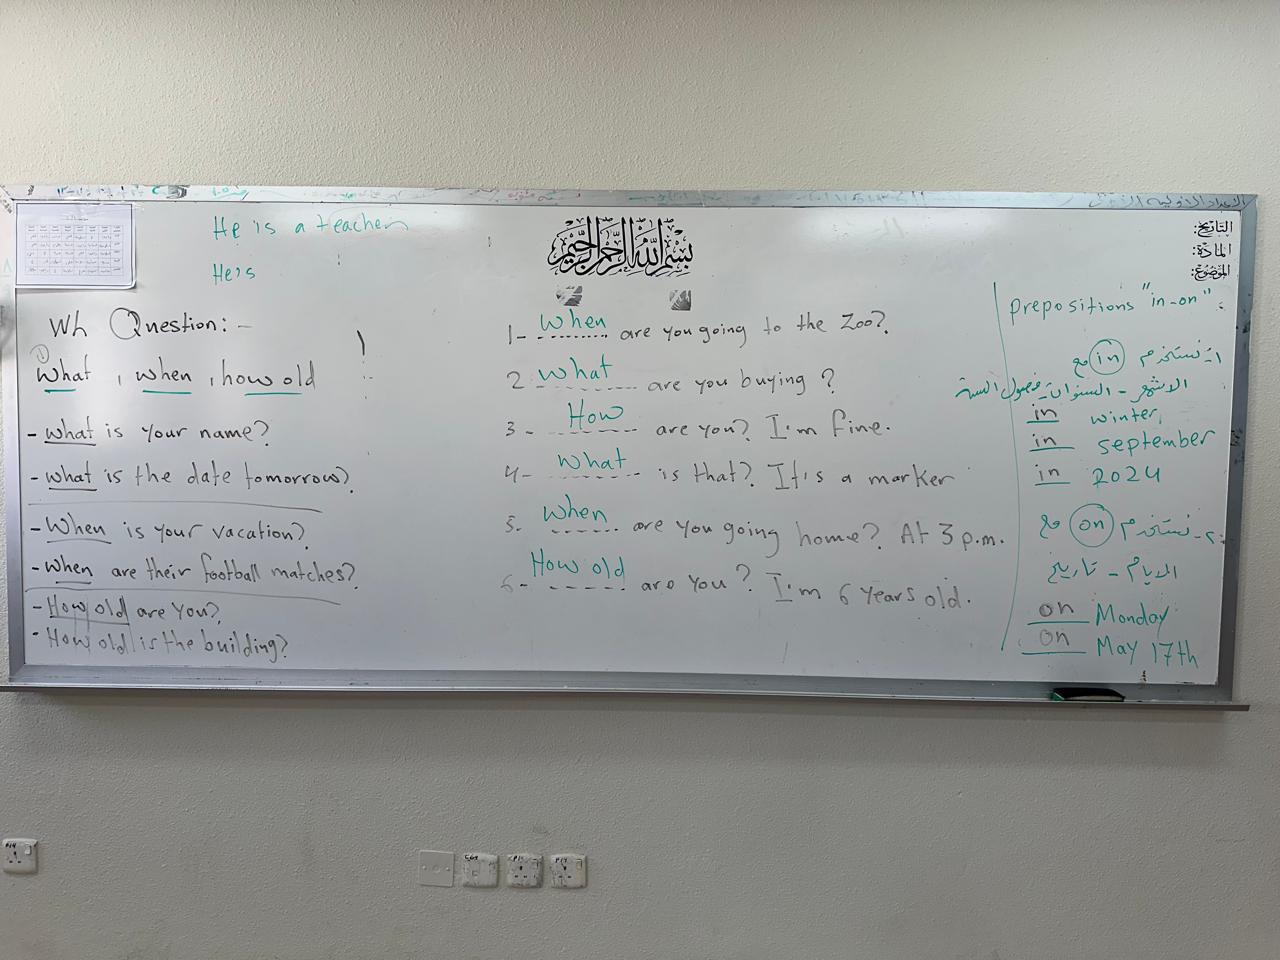 He is a teacher
He's
بسم الله الرحمن الرحيم
التاريخ:
المادة:
الموضوع:
Wh Question:-
① What , when , how old
- what is your name?
- what is the date tomorrow?
- When is your vacation?
- when are their football matches?
- How old are you?
- How old is the building?
1- When are you going to the Zoo?
2 what are you buying ?
3 - How are you? I'm fine.
4- what is that? It's a marker
5- when are you going home? At 3 p.m.
6- How old are you ? I'm 6 years old.
Prepositions "in-on" :
١- نستخدم in مع
الاشهر - السنوات - فصول السنة
in winter
in september
in 2024
٢- نستخدم on مع
الايام - تاريخ
on Monday
on May 17th